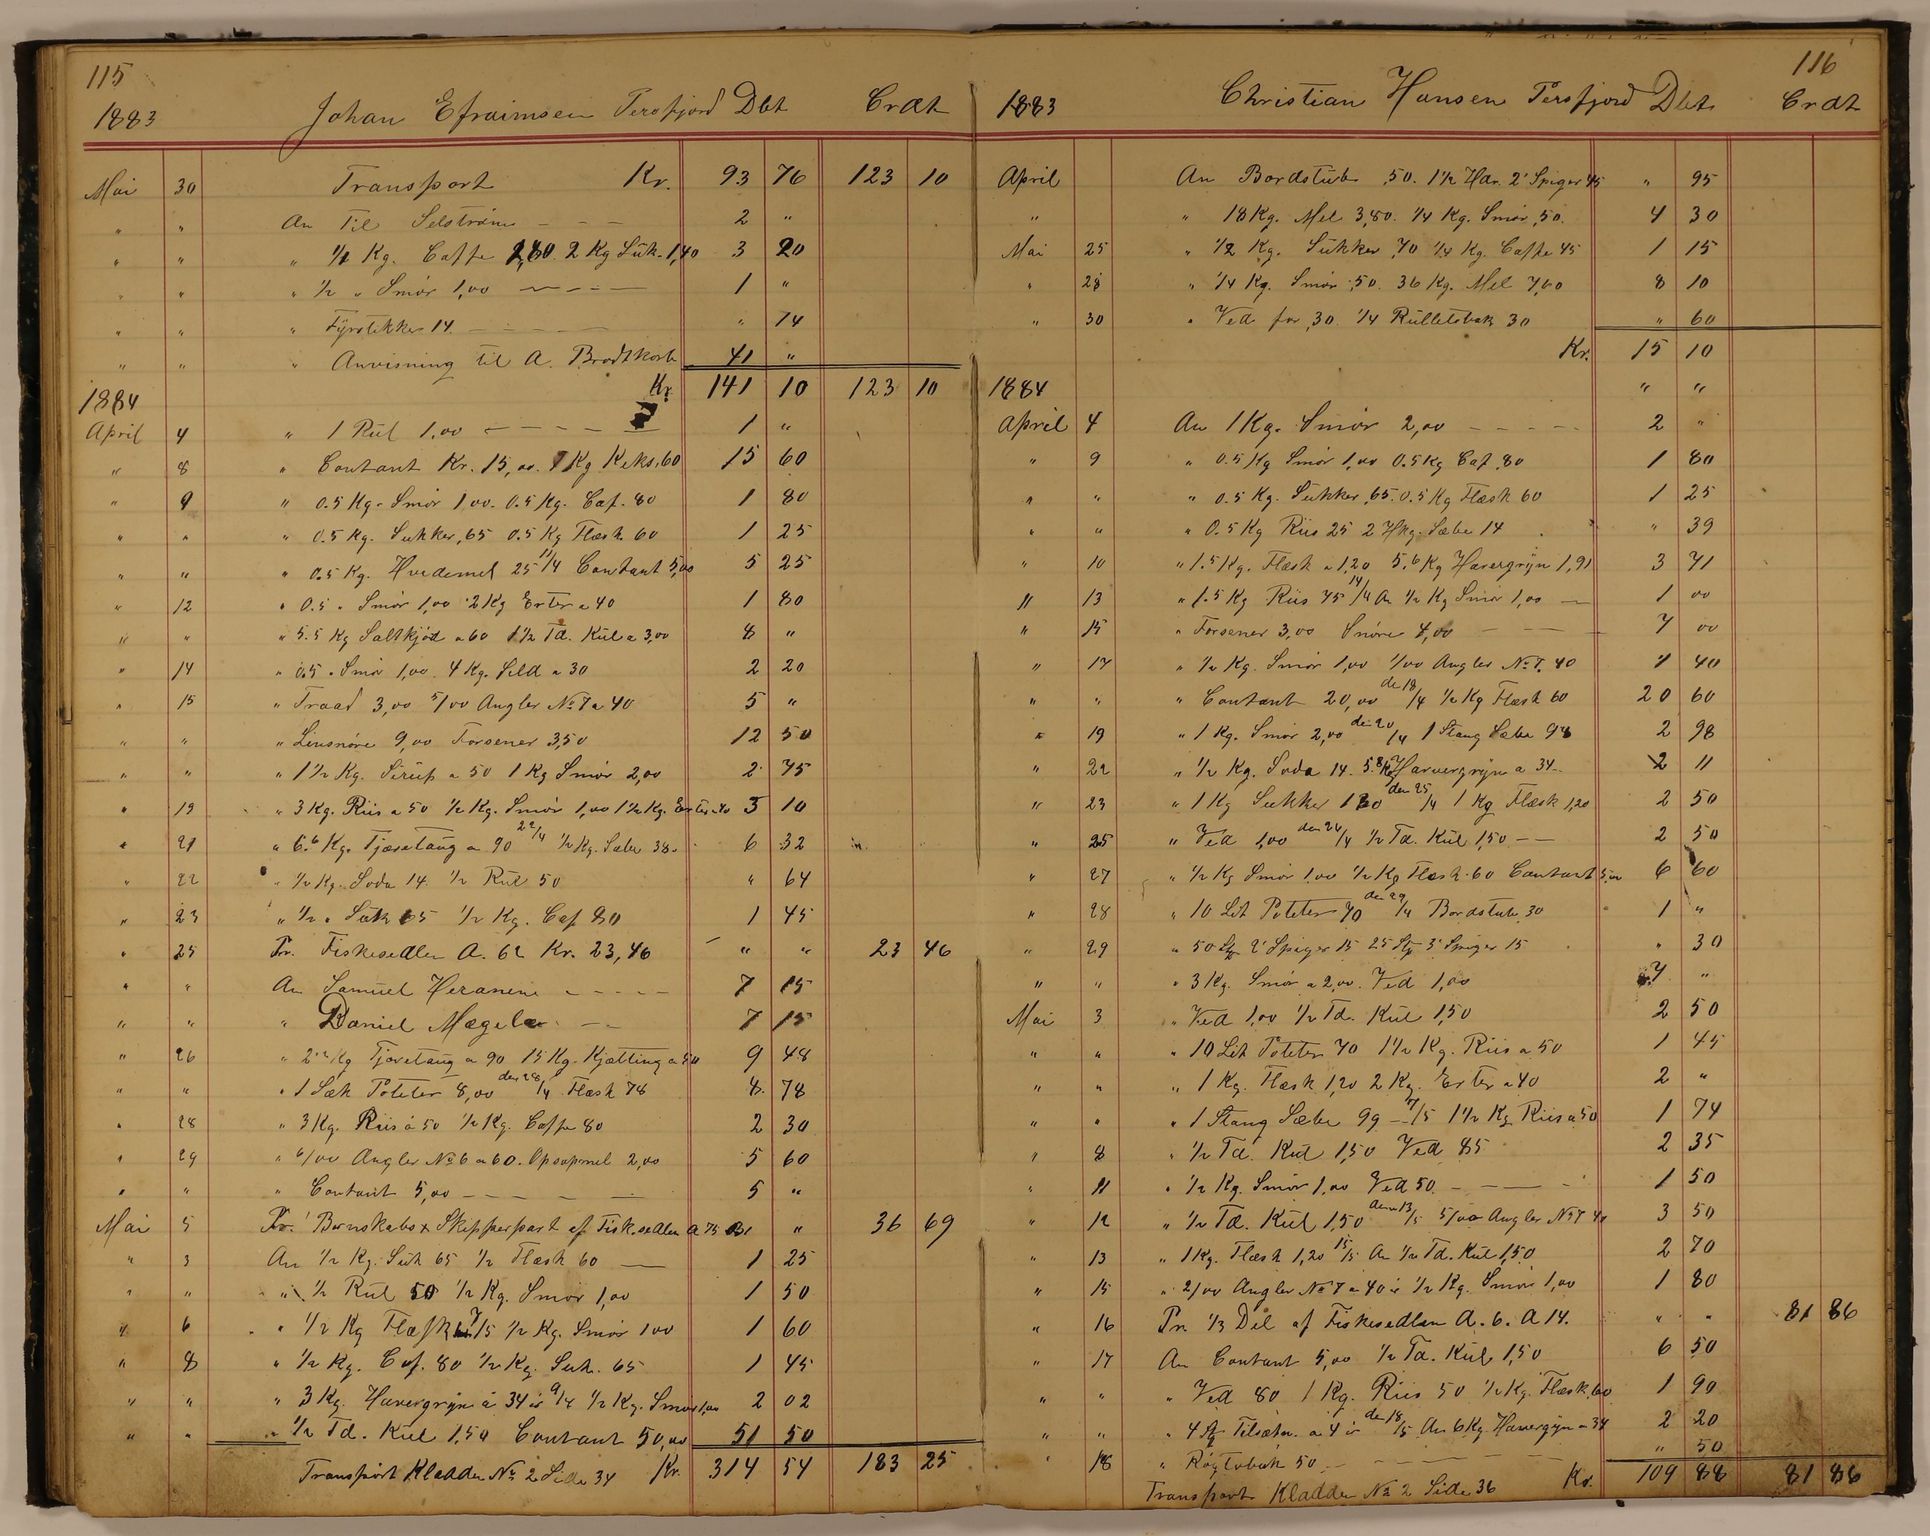 115
1883 Johan Efraimsen Persfjord Dbt Crdt
Mai 30 Transport Kr. 93 76 123 10
" " An Til Selstrøm - - - 2 "
" " " 1/1 Kg. Caffe 1,80. 2 Kg Suk. 1,40 3 20
" " " 1/2 " Smør 1,00 - - - - 1 "
" " " Fyrstikker 14. - - - " 14
" " " Anvisning til A. Brodtkorb 41 "
Kr. 141 10 123 10
1884
April 4 " 1 Rul 1,00 - - - - 1 "
" 8 " Contant Kr. 15,00. 1 Kg Keks. 60 15 60
" 9 " 0.5 Kg. Smør 1,00. 0.5 Kg. Caf. 80 1 80
" " " 0.5 Kg. Sukker, 65 0.5 Kg Flæsk. 60 1 25
" " " 0.5 Kg. Hvedemel 25 11/4 Contant 5,00 5 25
" 12 " 0.5 " Smør 1,00 2 Kg Erter a 40 1 80
" " " 5.5 Kg Saltkjød a 60 1 1/2 Td. Kul a 3,00 8 "
" 14 " 0.5 " Smør 1,00. 4 Kg. Sild a 30 2 20
" 15 " Traad 3,00 5/00 Angler No 7 a 40 5 "
" " " Linsnøre 9,00 Forsener 3,50 12 50
" " " 1 1/2 Kg. Sirup a 50 1 Kg Smør 2,00 2 75
" 19 " 3 Kg. Riis a 50 1/2 Kg. Smør 1,00 1 1/2 Kg. Erter a 40 3 10
" 21 " 6.6 Kg. Tjæretaug a 90 22/4 1/2 Kg. Sæbe 38. 6 32
" 22 " 1/2 Kg. Soda 14. 1/2 Rul 50 " 64
" 23 " 1/2 " Suk 65 1/2 Kg. Caf 80 1 45
" 25 Pr. Fiskesedlen A. 62 Kr. 23,46 " " 23 46
" " An Samuel Heranen - - - - 7 15
" " " Daniel - - 7 15
" 26 " 2.2 Kg Tjæretaug a 90 15 Kg. Kjætting a 50 9 48
" " " 1 Sæk Poteter 8,00 den 28/4 Flæsk 78 8. 78
" 28 " 3 Kg. Riis á 50 1/2 Kg. Caffe 80 2 30
" 29 " 6/00 Angler No 6 a 60. 2,00 5 60
" " " Contant 5,00 - - - - 5 "
Mai 5 Pr. Skipperpart af Fisk.sedlen A 75 " 36 69
" 3 An 1/2 Kg. Suk 65 1/2 Flæsk 60 - 1 25
" " " 1/2 Rul 50 1/2 Kg. Smør 1,00 1 50
" 6 " 1/2 Kg Flæsk 7/5 1/2 Kg. Smør 100 1 60
" 8 " 1/2 Kg. Caf. 80 1/2 Kg. Suk. 65 1 45
" " " 3 Kg. Havregryn á 34 ør 9/4 1/2 Kg. Smør 1,00 2 02
" " " 1/2 Td. Kul 1,50 Contant 50,00 51 50
Transport Kladden No 2 Side 34 Kr. 314 54 183 25
116
1883 Christian Hansen Persfjord Dbt Crdt
April An Bordstub 50. 1 1/2 Hdr. 2" Spiger 45 " 95
" " 18 Kg. Mel 3,80. 1/4 Kg. Smør, 50. 4 30
Mai 25 " 1/2 Kg. Sukker, 70 1/4 Kg. Caffe 45 1 15
" 28 " 1/4 Kg. Smør ,50. 36 Kg. Mel 7,60 8 10
" 30 " Ved for, 30. 1/4 Rulletobak 30 " 60
Kr. 15 10
1884 " "
April 4 An 1 Kg. Smør 2,00 - - - - - 2 "
" 9 " 0.5 Kg Smør 1,00 0.5 Kg Caf ,80 1 80
" " " 0.5 Kg. Sukker, 65. 0.5 Kg Flæsk 60 1 25
" " " 0.5 Kg Riis 25 2 Hkg. Sæbe 14 " 39
" 10 " 1.5 Kg. Flæsk a 1,20 5.6 Kg Havregryn 1,91 3 71
" 13 " 1.5 Kg Riis 75 14/4 An 1/2 Kg Smør 1,00 - 1 00
" 15 " Forsener 3,00 Snøre 4,00 - - - 7 00
" 17 " 1/2 Kg. Smør 1,00 1/00 Angler No 7. 40 1 40
" " " Contant 20,00 de 18/4 1/2 Kg Flæsk 60 20 60
" 19 " 1 Kg. Smør 2,00 den 20/4 1 Stang Sæbe 98 2 98
" 22 " 1/2 Kg. Soda 14. 5.8 Kg Havregryn a 34 2 11
" 23 " 1 Kg Sukker 130 den 25/4 1 Kg Flæsk 1,20 2 50
" 25 " Ved 1,00 den 26/4 1/2 Td. Kul 1,50 - - 2 50
" 27 " 1/2 Kg Smør 1.00 1/2 Kg Flæsk. 60 Contant 5,00 6 60
" 28 " 10 Lit Poteter 70 den 29/4 Bordstub, 30 1 "
" 29 " 50 Stk 2" Spiger 15 25 Stk 3" Spiger 15 " 30
" " " 3 Kg. Smør a 2,00. Ved 1,00 7 "
Mai 3 " Ved 1,00 1/2 Td. Kul 1,50 2 50
" " " 10 Lit Poteter 70 1 1/2 Kg. Riis a 50 1 45
" " " 1 Kg. Flæsk 1,20 2 Kg. Erter a 40 2 "
" " " 1 Stang Sæbe 99 - 7/5 1 1/2 Kg Riis a 50 1 74
" 8 " 1/2 Td. Kul 1,50 Ved 85 2 35
" 11 " 1/2 Kg. Smør 1,00 Ved 50. - - - 1 50
" 12 " 1/2 Td. Kul 1,50 den 13/5 5/00 Angler No 7 40 3 50
" 13 " 1 Kg. Flæsk 1,20 15/5 An 1/2 Td. Kul 1,50 2 70
" 15 " 2/00 Angler No 7 a 40 ør 1/2 Kg. Smør 1,00 1 80
" 16 Pr. 1/3 Del af Fiskesedlen A. 6. A 14. " " 81 86
" 17 An Contant 5,00 1/2 Td. Kul 1,50 6 50
" " " Ved 80 1 Kg. Riis 50 1/2 Kg. Flæsk. 60 1 90
" " " 4 a 4 ør den 18/5 An 6 Kg. Havregryn a 34 2 20
" 18 " Røgtobak 50 - - - - " 50
Transport Kladden No 2 Side 36 Kr. 109 88 81 86